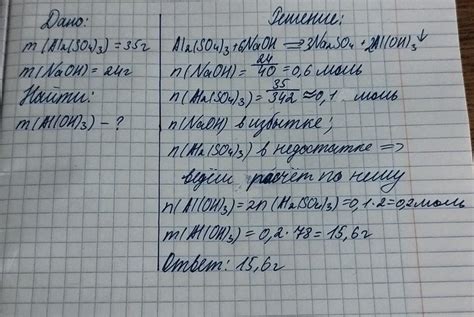 Дано:
m(Al2(SO4)3) = 35г
m(NaOH) = 24г
Найти:
m(Al(OH)3) - ?
Решение:
Al2(SO4)3+6NaOH => 3Na2SO4 + 2Al(OH)3↓
n(NaOH) = 24/40 = 0,6 моль
n(Al2(SO4)3) = 35/342 ≈ 0,1 моль
n(NaOH) в избытке;
n(Al2(SO4)3) в недостатке =>
ведём расчёт по нему
n(Al(OH)3) = 2n(Al2(SO4)3) = 0,1·2 = 0,2моль
m(Al(OH)3) = 0,2·78 = 15,6г
Ответ: 15,6г